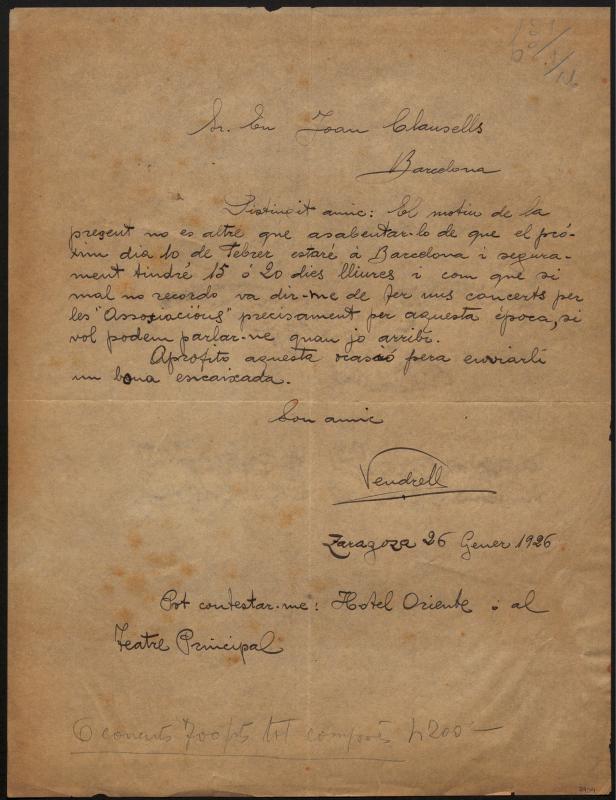 Sr. En Joan Clausells
Barcelona
Distingit amic: El motiu de la
present no es altre que asabentar-lo de que el prò-
xim dia 10 de Febrer estaré à Barcelona i segura-
ment tindré 15 ó 20 dies lliures i com que si
mal no recordo va dir-me de fer uns concerts per
les "Associacions" precisament per aquesta època, si
vol podem parlar-ne quan jo arribi.
Aprofito aquesta ocasió pera enviarli
un bona encaixada.
Son amic
Vendrell
Zaragoza 26 Gener 1926
Pot contestar-me: Hotel Oriente ó al
Teatre Principal
6 concerts 700 pts tot compres 4200 —